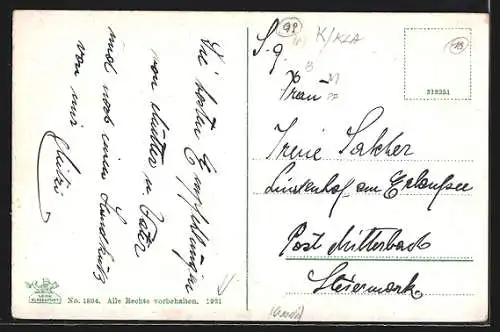 Die besten Empfehlungen
von Mutter u. Vater
und noch einen Handkuss
von mir
S. g.
Frau
Irene
Lindenhof am Erlaufsee
Post Mitterbach
Steiermark
98
K/KLA
B
M
13
318351
No. 1894. Alle Rechte vorbehalten. 1921